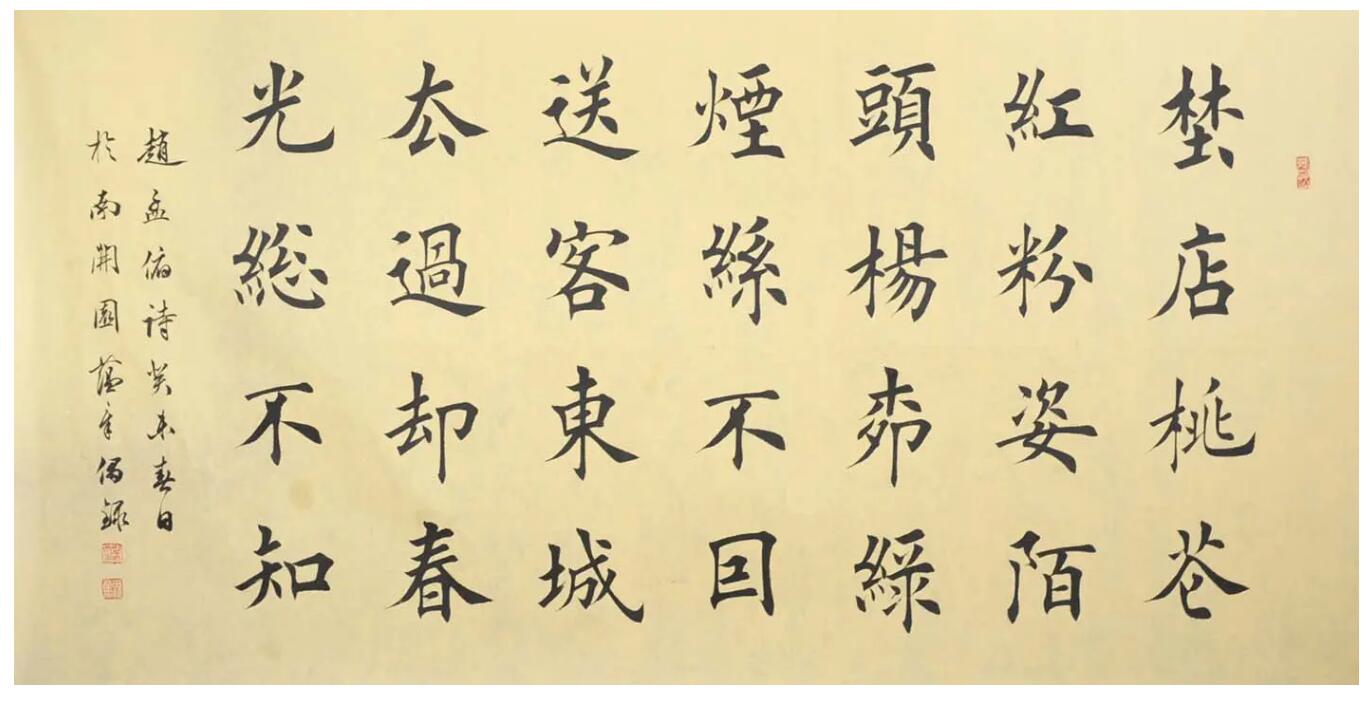 埜店桃花
紅粉姿陌
頭楊柳綠
煙絲不因
送客東城
去過却春
光総不知
趙孟俯詩癸未春日
於南開園偶録